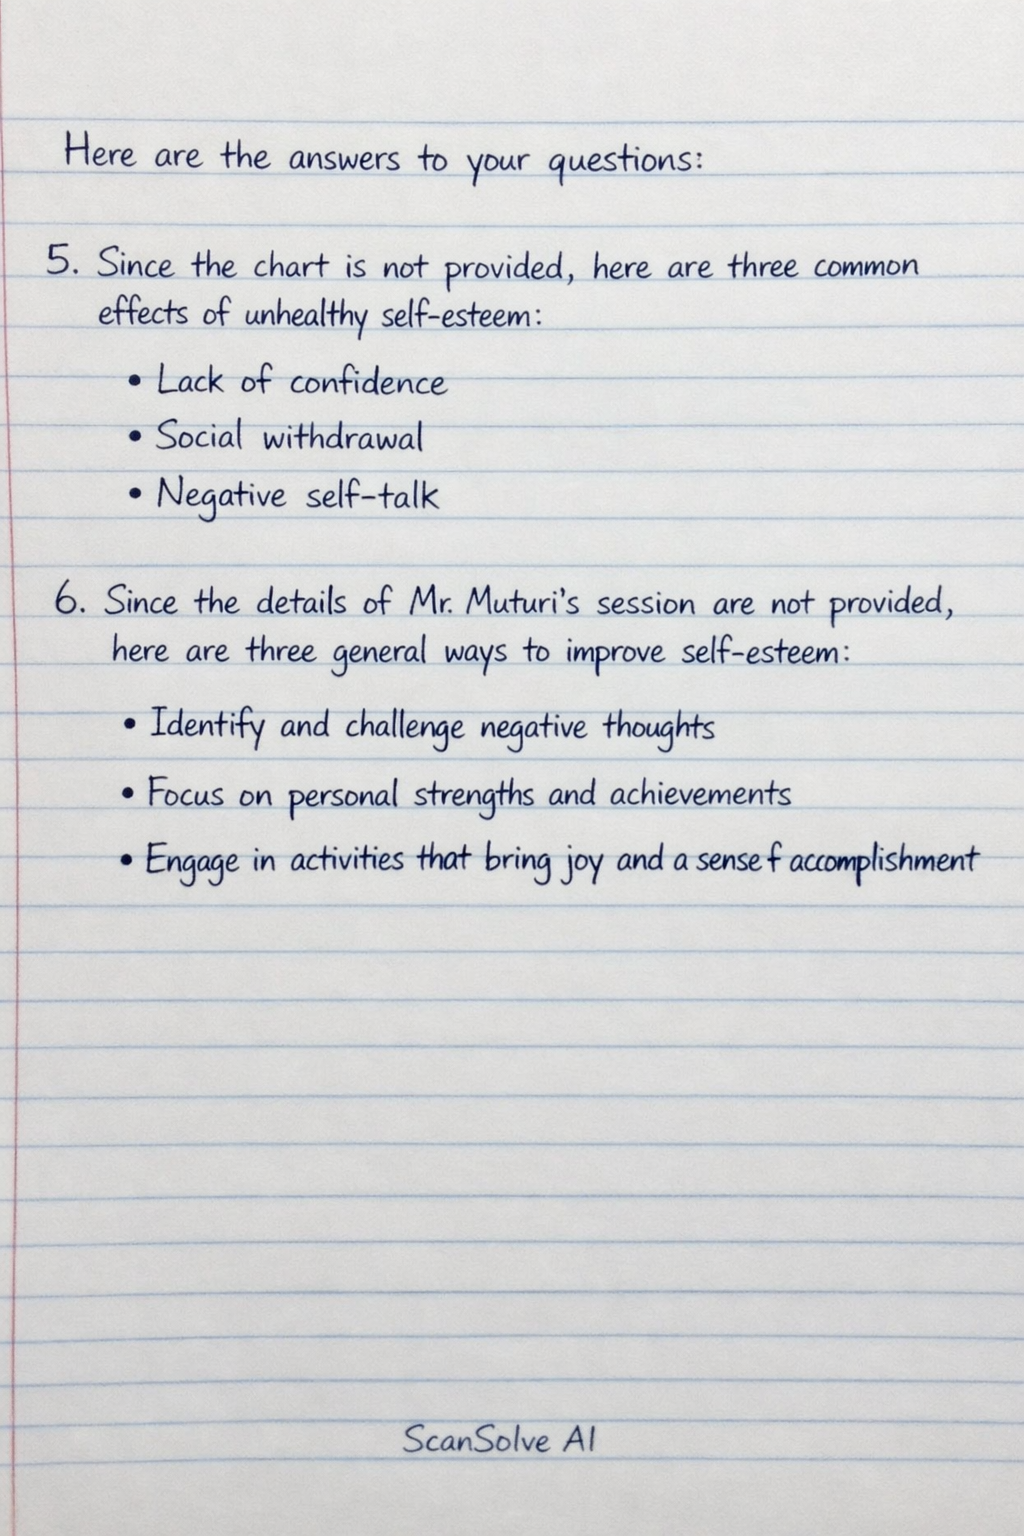 Here are the answers to your questions:
5. Since the chart is not provided, here are three common
effects of unhealthy self-esteem:
• Lack of confidence
• Social withdrawal
• Negative self-talk
6. Since the details of Mr. Muturi's session are not provided,
here are three general ways to improve self-esteem:
• Identify and challenge negative thoughts
• Focus on personal strengths and achievements
• Engage in activities that bring joy and a sense f accomplishment
ScanSolve AI